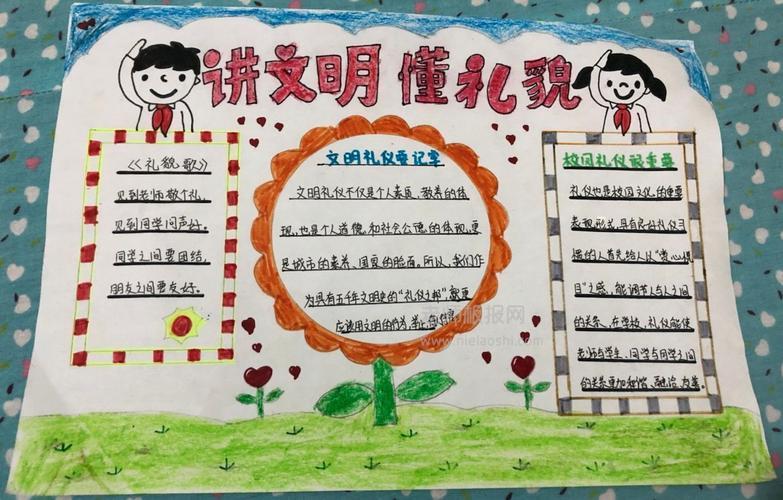 讲文明 懂礼貌
《礼貌歌》
见到老师敬个礼,
见到同学问声好。
同学之间要团结,
朋友之间要友好。
文明礼仪要记牢
文明礼仪不仅是个人素质、教养的体
现,也是个人道德和社会公德的体现,更
是城市的素养、国家的脸面。所以,我们作
为具有五千年文明史的“礼仪之邦”,
应该用文明的行为
校园礼仪很重要
礼仪也是校园文化的重要
表现形式,具有良好礼仪习
惯的人首先给人以“赏心悦
目”之感,能调节人与人之间
的关系,在学校,礼仪能使
老师与学生、同学与同学之间
的关系更加和谐、融洽、友善。
www.nielaoshi.com